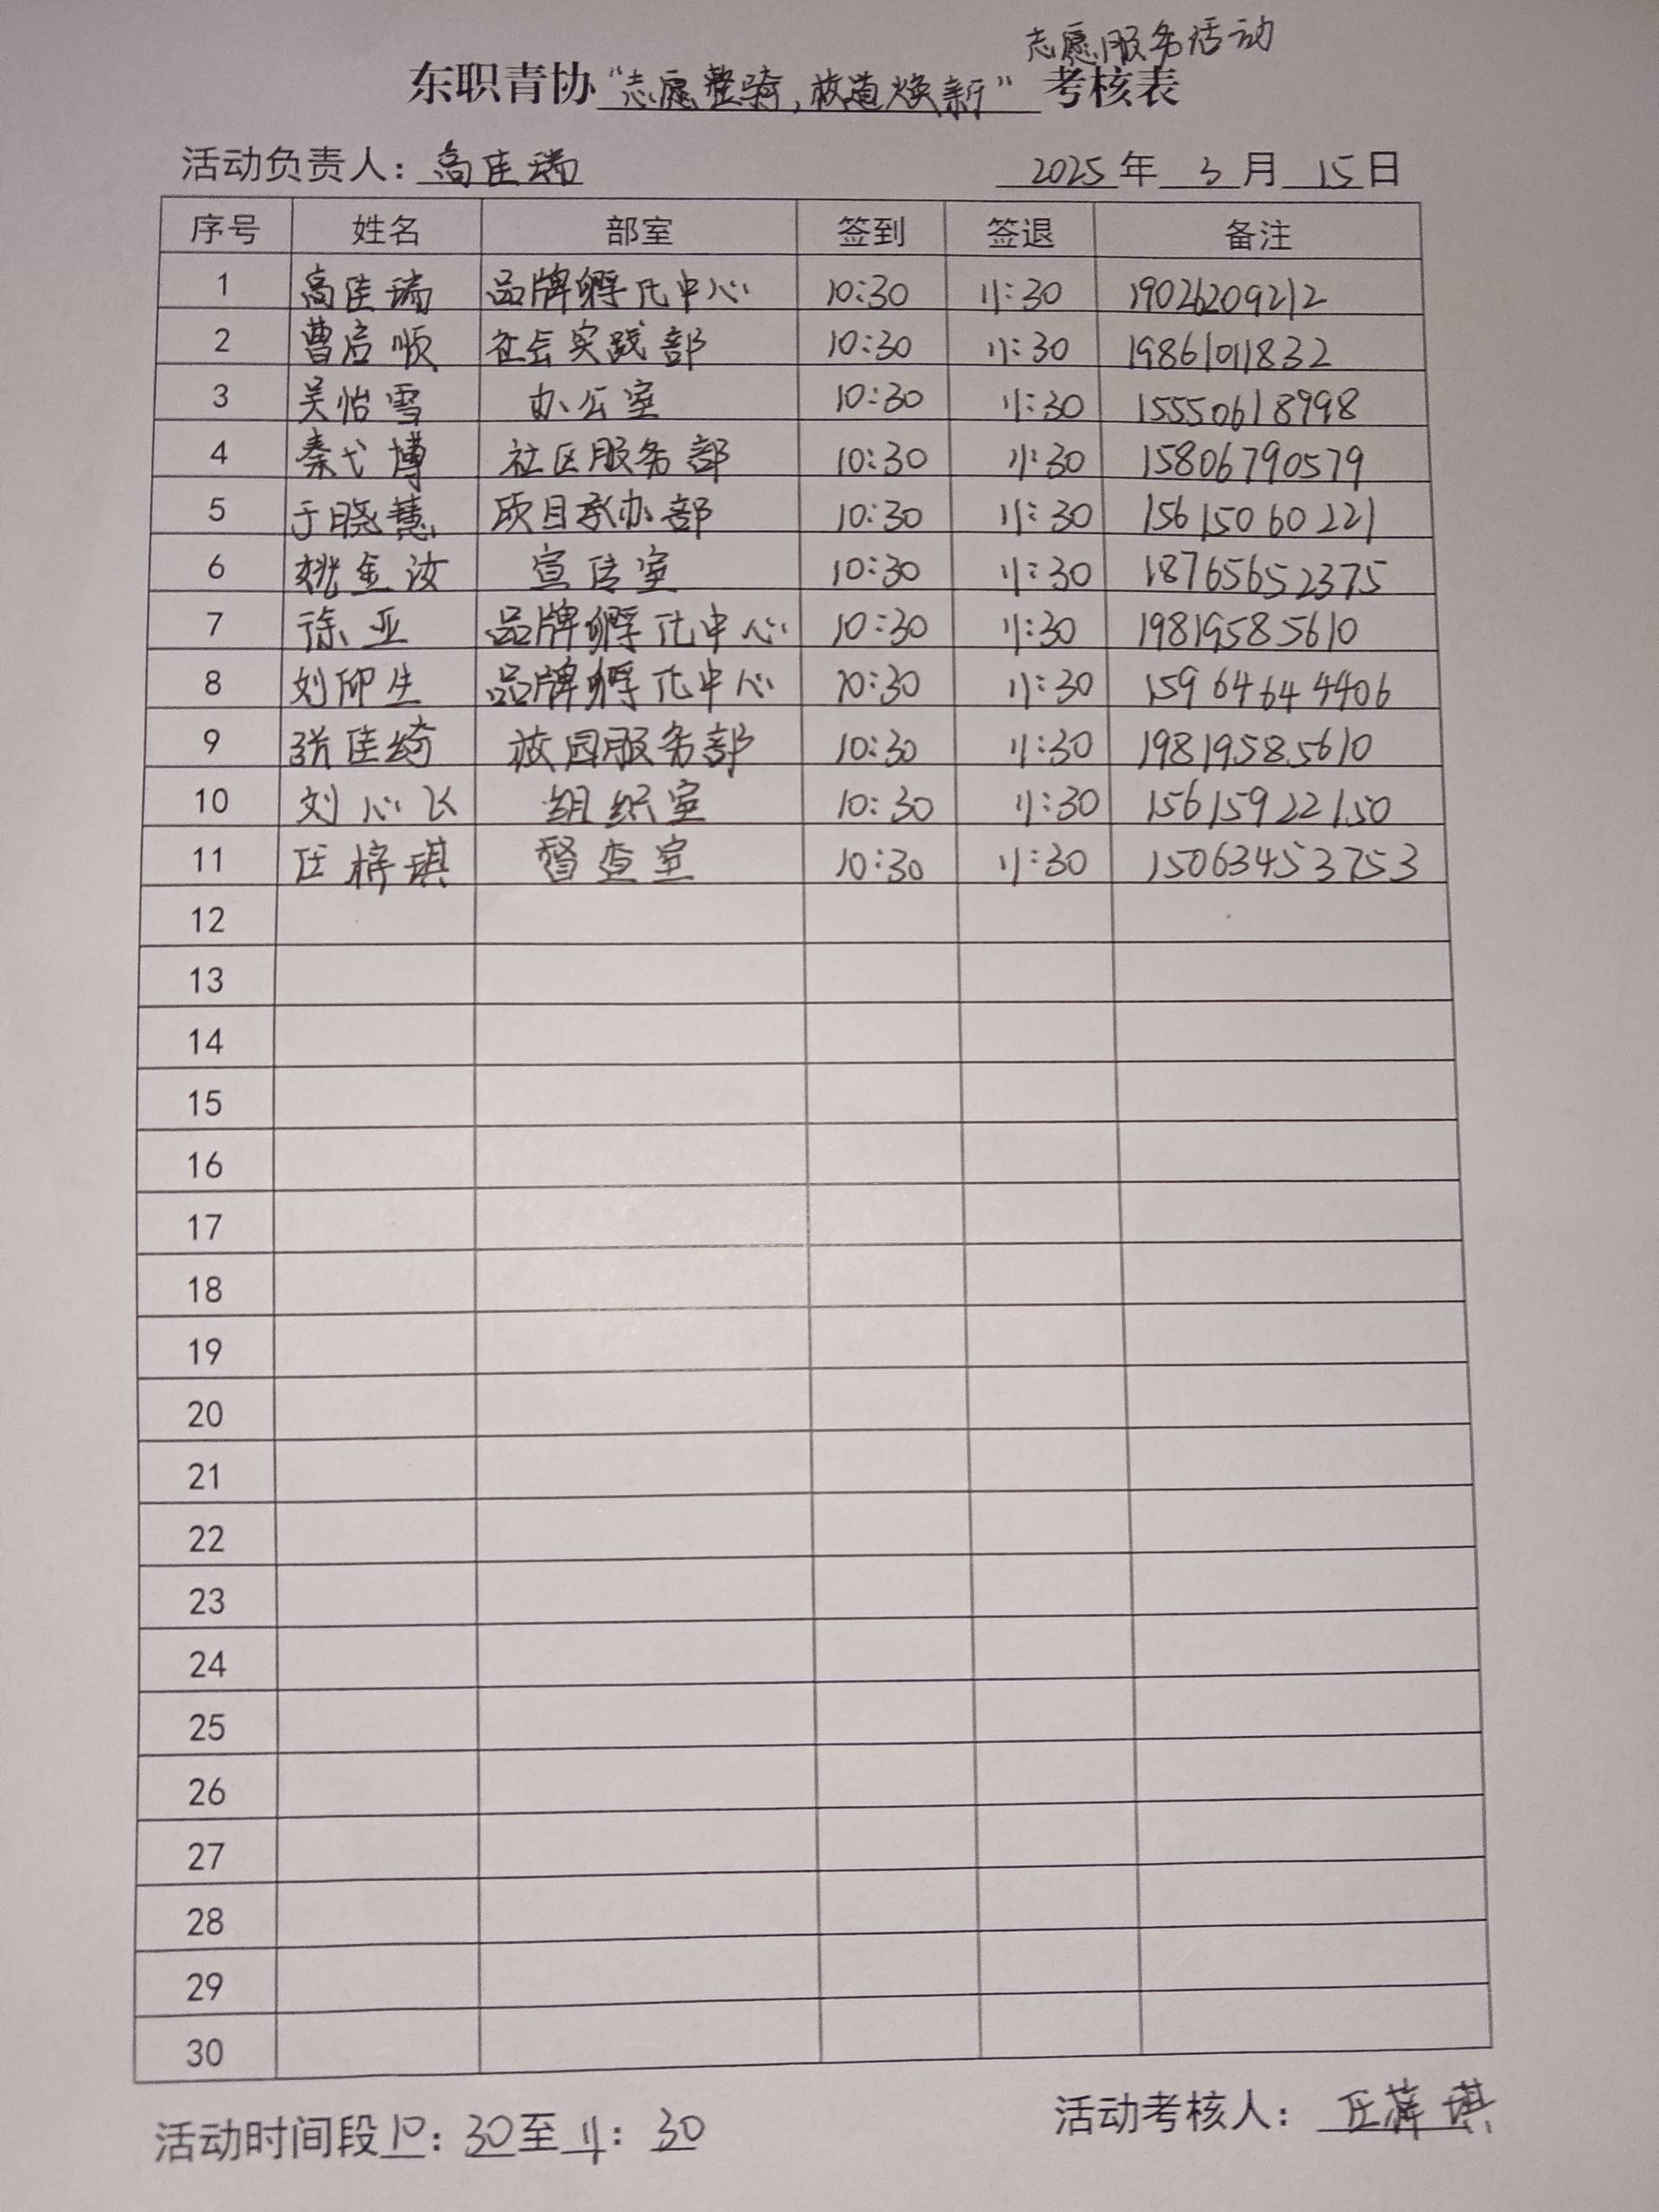 志愿服务活动
东职青协“志愿整骑,校道焕新”考核表
活动负责人:高佳瑞 2025年3月15日
序号 姓名 部室 签到 签退 备注
1 高佳瑞 品牌孵化中心 10:30 11:30 19026209212
2 曹启顺 社会实践部 10:30 11:30 19861011832
3 吴怡雪 办公室 10:30 11:30 15550618998
4 秦弋博 社区服务部 10:30 11:30 15806790579
5 于晓慧 项目承办部 10:30 11:30 15615060221
6 姚金汝 宣传室 10:30 11:30 18765652375
7 徐亚 品牌孵化中心 10:30 11:30 19819585610
8 刘仰生 品牌孵化中心 10:30 11:30 15964644406
9 张佳绮 校园服务部 10:30 11:30 19819585610
10 刘心飞 组织室 10:30 11:30 15615922150
11 任梓琪 督查室 10:30 11:30 15063453753
12
13
14
15
16
17
18
19
20
21
22
23
24
25
26
27
28
29
30
活动时间段10:30至11:30 活动考核人:任梓琪